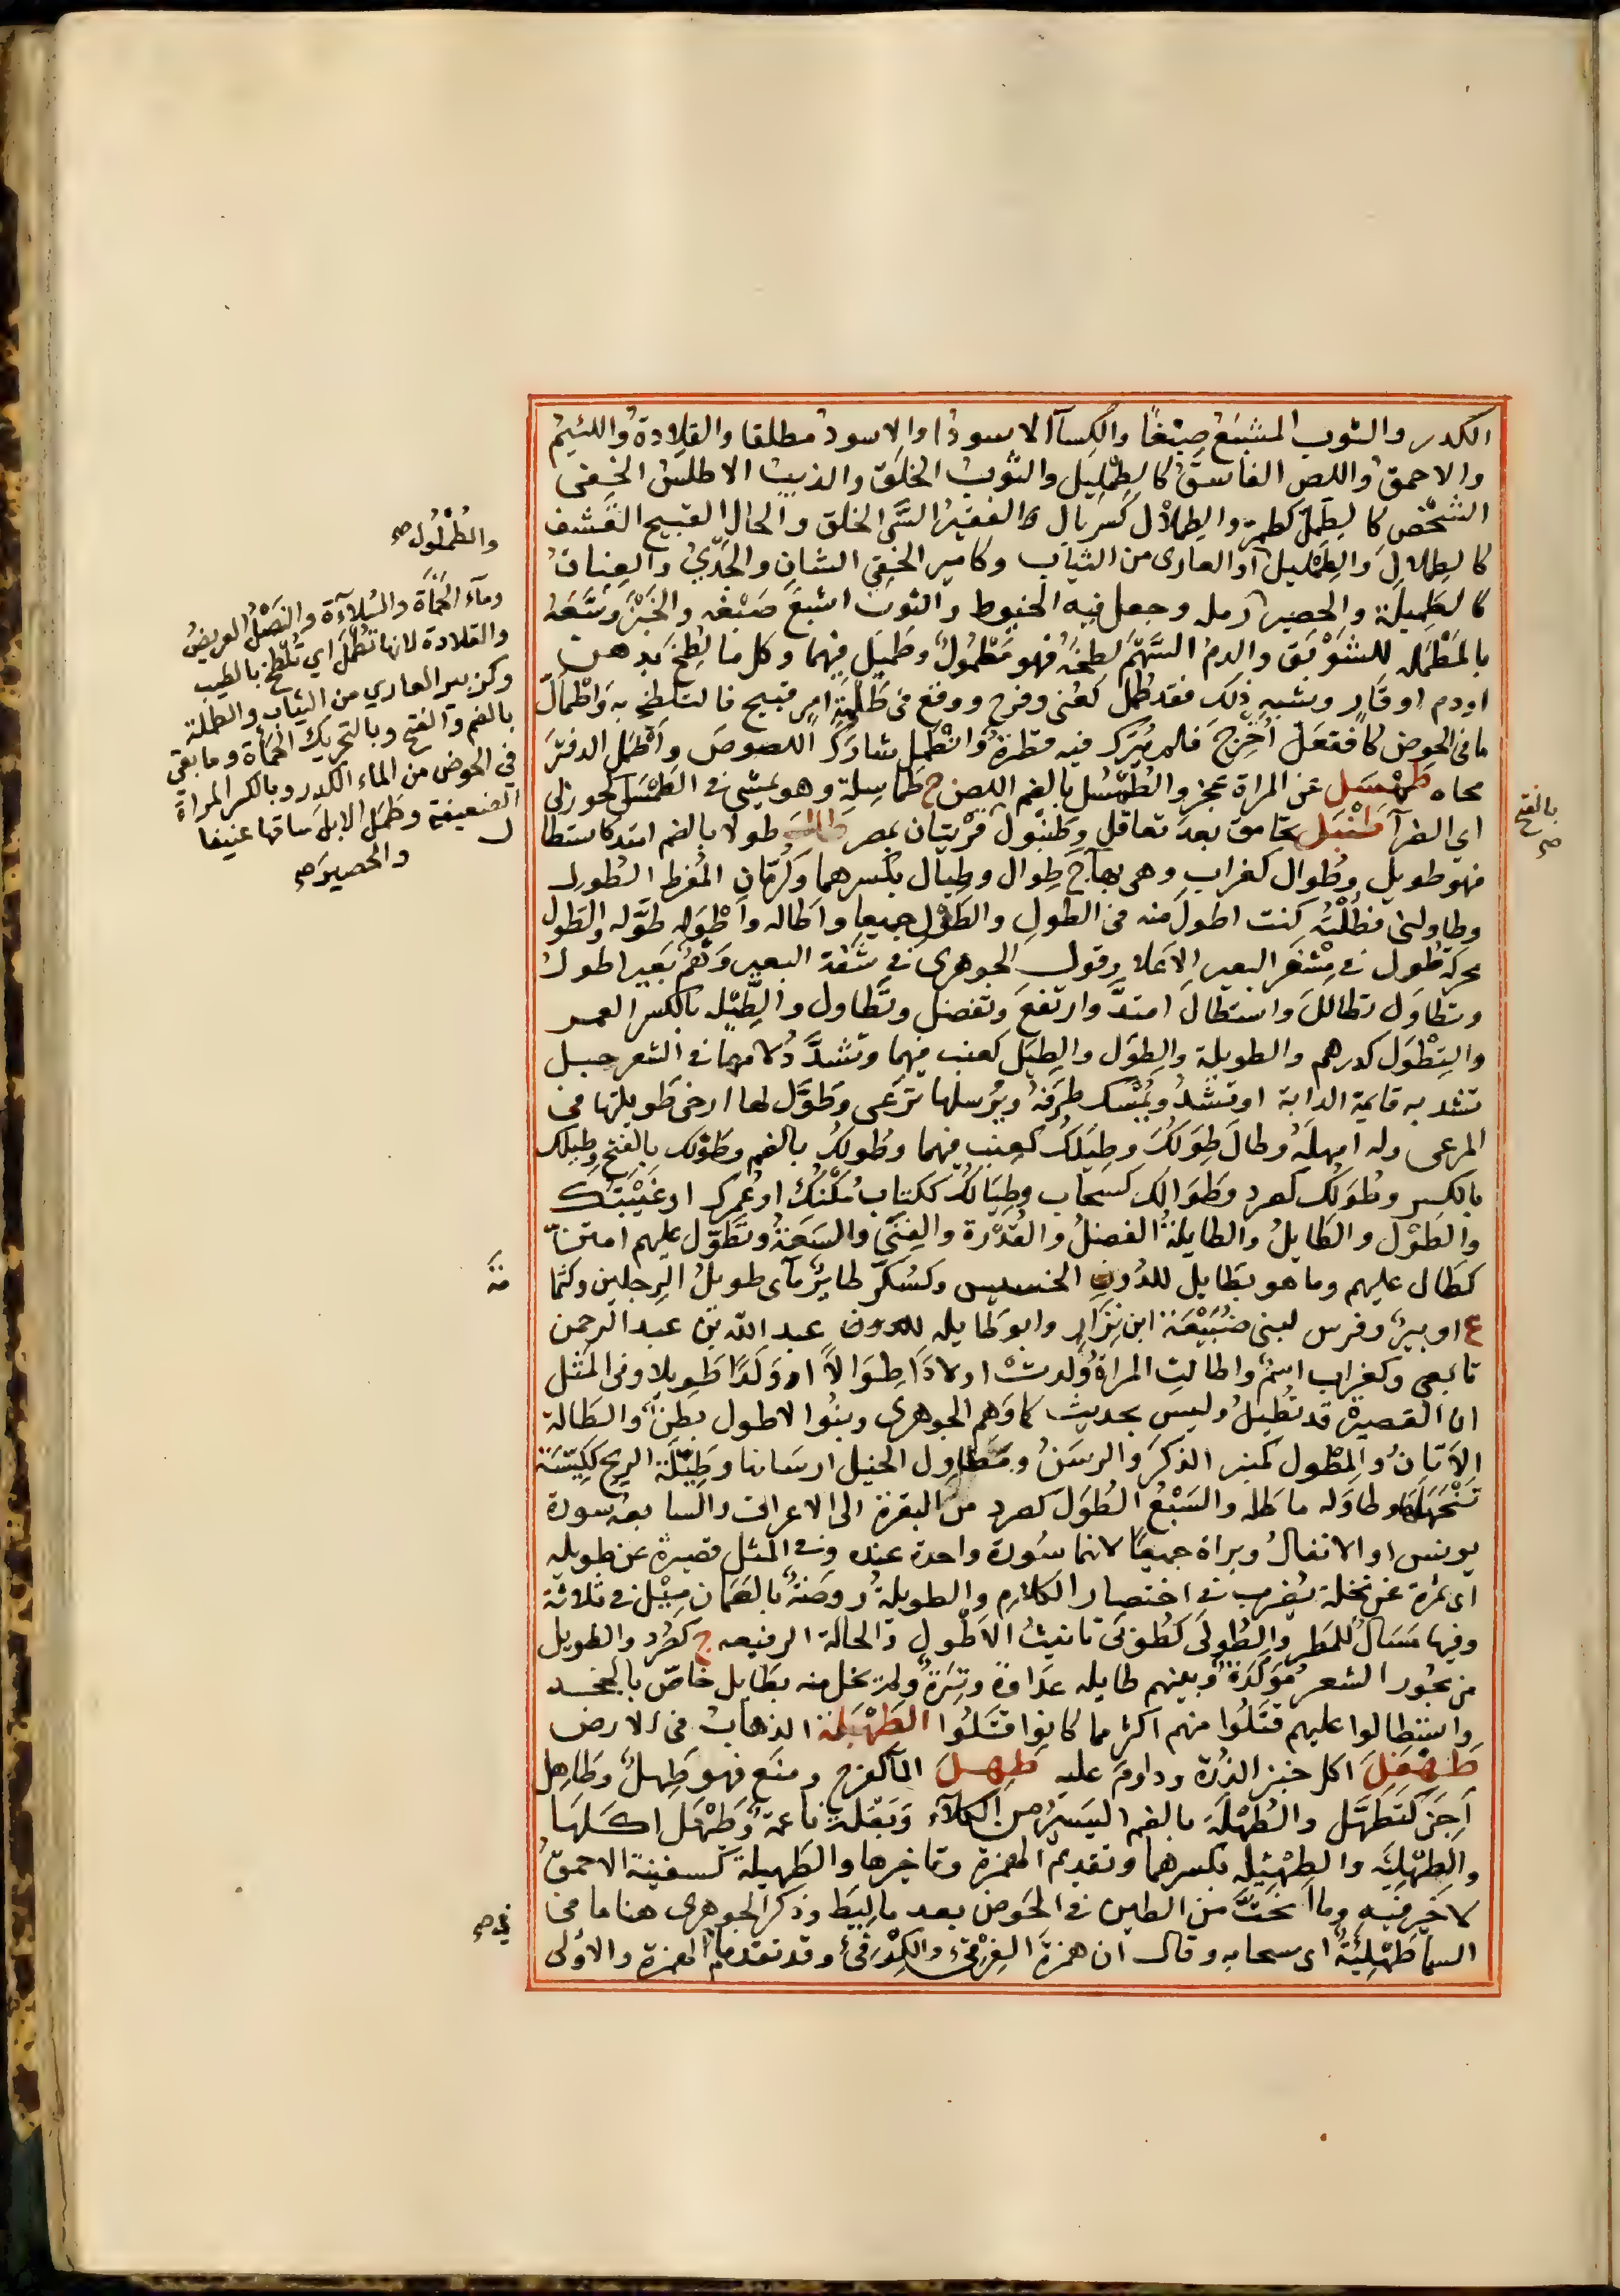 الكدر والثوب المشبع صبغًا والكساآ الاسود او الاسود مطلقا والقلادة واللئيم
والاحمق واللص الفاسق كالطمليل والثوب الخلق والذيب الاطلس الخفى
الشخص كالطمل كطمر والطملال كسربال والفقير السّئ الخلق والحال القبيح القشف
كالطملال والطمليل او العارى من الثياب وكامير الخفى الشان والجدي والعناق
كالطميلة والحصير رمله وجعل فيه الخيوط والثوب اشبع صبغه والخبز وسّعه
بالمطمله للشوبق والدم السهم لطخه فهو مطمول وطميل فيهما وكل ما لطخ بدهن
اودم او قار وشبهه ذلك فقد طمل كعنى وفرح ووقع فى طملة امر قبيح فالتطخ به واطّمل
ما فى الحوض كافتعل اخرج فلم يترك فيه قطرة وانطمل شارك اللصوص واطمل الدفتر
محاه طمسل عن المراة عجز والطمسل بالضم اللص ج طماسلة وهو يمشى فى الطمسلى كخوزلى
اى الضرآ طنبل تحامق بعد تعاقل وطنبول قريتان بمصر طال طولا بالضم امتد كاستطا
فهو طويل وطوال كغراب وهى بهاج طوال وطيال بكسرهما وكرمان المفرط الطول
وطاولنى فطلته كنت اطول منه من الطول والطول جميعا واطاله واطوله طوّله والطول
محركة طول فى مشفر البعير الاعلا وقول الجوهرى فى شفة البعير وهم بعير اطول
وتطاول تطالل واستطال امتدّ وارتفع وتفضل وتطاول والطيله بالكسر العمر
والتطول كدرهم والطويلة والطول والطيل كعنب فيهما وتشدّد لامهما فى الشعر حبل
تشد به قايمة الدابة او تشد ويمسك طرفه ويرسلها ترعى وطول لها ارخى طويلتها فى
المرعى وله امهله وطال طولك وطيلك كعنب فيهما وطولك بالضم وطولك بالفتح وطيلك
بالكسر وطولك كصرد وطوالك كسحاب وطيالك ككتاب مكثك او عمرك او غيبتك
والطول والطايل والطايلة الفضل والقدرة والغنى والسعة وتطول عليهم امتنّ
كطال عليهم وما هو بطايل للدون الخسيس وكسكر طاير مآى طويل الرجلين وكثما
ع او بير وفرس لبنى ضبيعة ابن نزار وابو طايله للدون عبد الله بن عبد الرحمن
تابعى وكغراب اسم واطالت المراة ولدت اولادا طوالا او ولدا طويلا وفى المثل
ان القصيرة قد تطيل وليس بحديث كما وهم الجوهرى وبنوا الاطول بطن والطالة
الاتان والمطول كمنبر الذكر والرسن ومطاول الخيل ارسانها وطيلة الريح ككيسة
نيحتها وطاوله ماطله والسبع الطول كصرد من البقرة الى الاعراف والسابعة سورة
يونس او الانفال وبراة جميعا لانهما سورة واحدة عنده وفى المثل قصيرة عن طويله
اى تمرة عن نخلة يضرب فى اختصار الكلام والطويلة روضة بالصمان ميل فى ثلاثة
وفيها مسال للمطر والطولى كطوبى تانيث الاطول والحالة الرفيعه ج كصرد والطويل
من بحور الشعر مولدة وبينهم طايله عداوة وترة ولم يحل منه بطايل خاص بالجحد
واستطالوا عليهم قتلوا منهم اكثر مما كانوا قتلوا الطهبلة الذهاب فى الارض
طهفل اكل خبز الذرة وداوم عليه طهل المآ كفرح ومنع فهو طهل وطاهل
اجن كتطهل والطهلة بالضم اليسير من الكلآء وبقلة ناعمة وطهل اكلها
والطهلية والطهيله بكسرهما وتقديم الهمزة وتاخيرها والطهيلة كسفينة الاحمق
لا خير فيه وما انحتّ من الطين فى الحوض بعد ما ليط وذكر الجوهرى هنا ما فى
السما طهلئة اى سحابه وقال ان همزة الغرقئ والكرفئ وقد تقدما الهمزة والاولى
والطملول صح
ومآء الحمأة والسلآءة والنصل العريض
والقلادة لانها تطمل اي تلطخ بالطيب
وكزبير العاري من الثياب والطملة
بالضم والفتح وبالتحريك الحمأة وما بقي
في الحوض من الماء الكدر وبالكسر المراة
الضعيفة وطمل الابل ساقها عنيفا
والحصير صح
بالفتح صح
منه
في صح